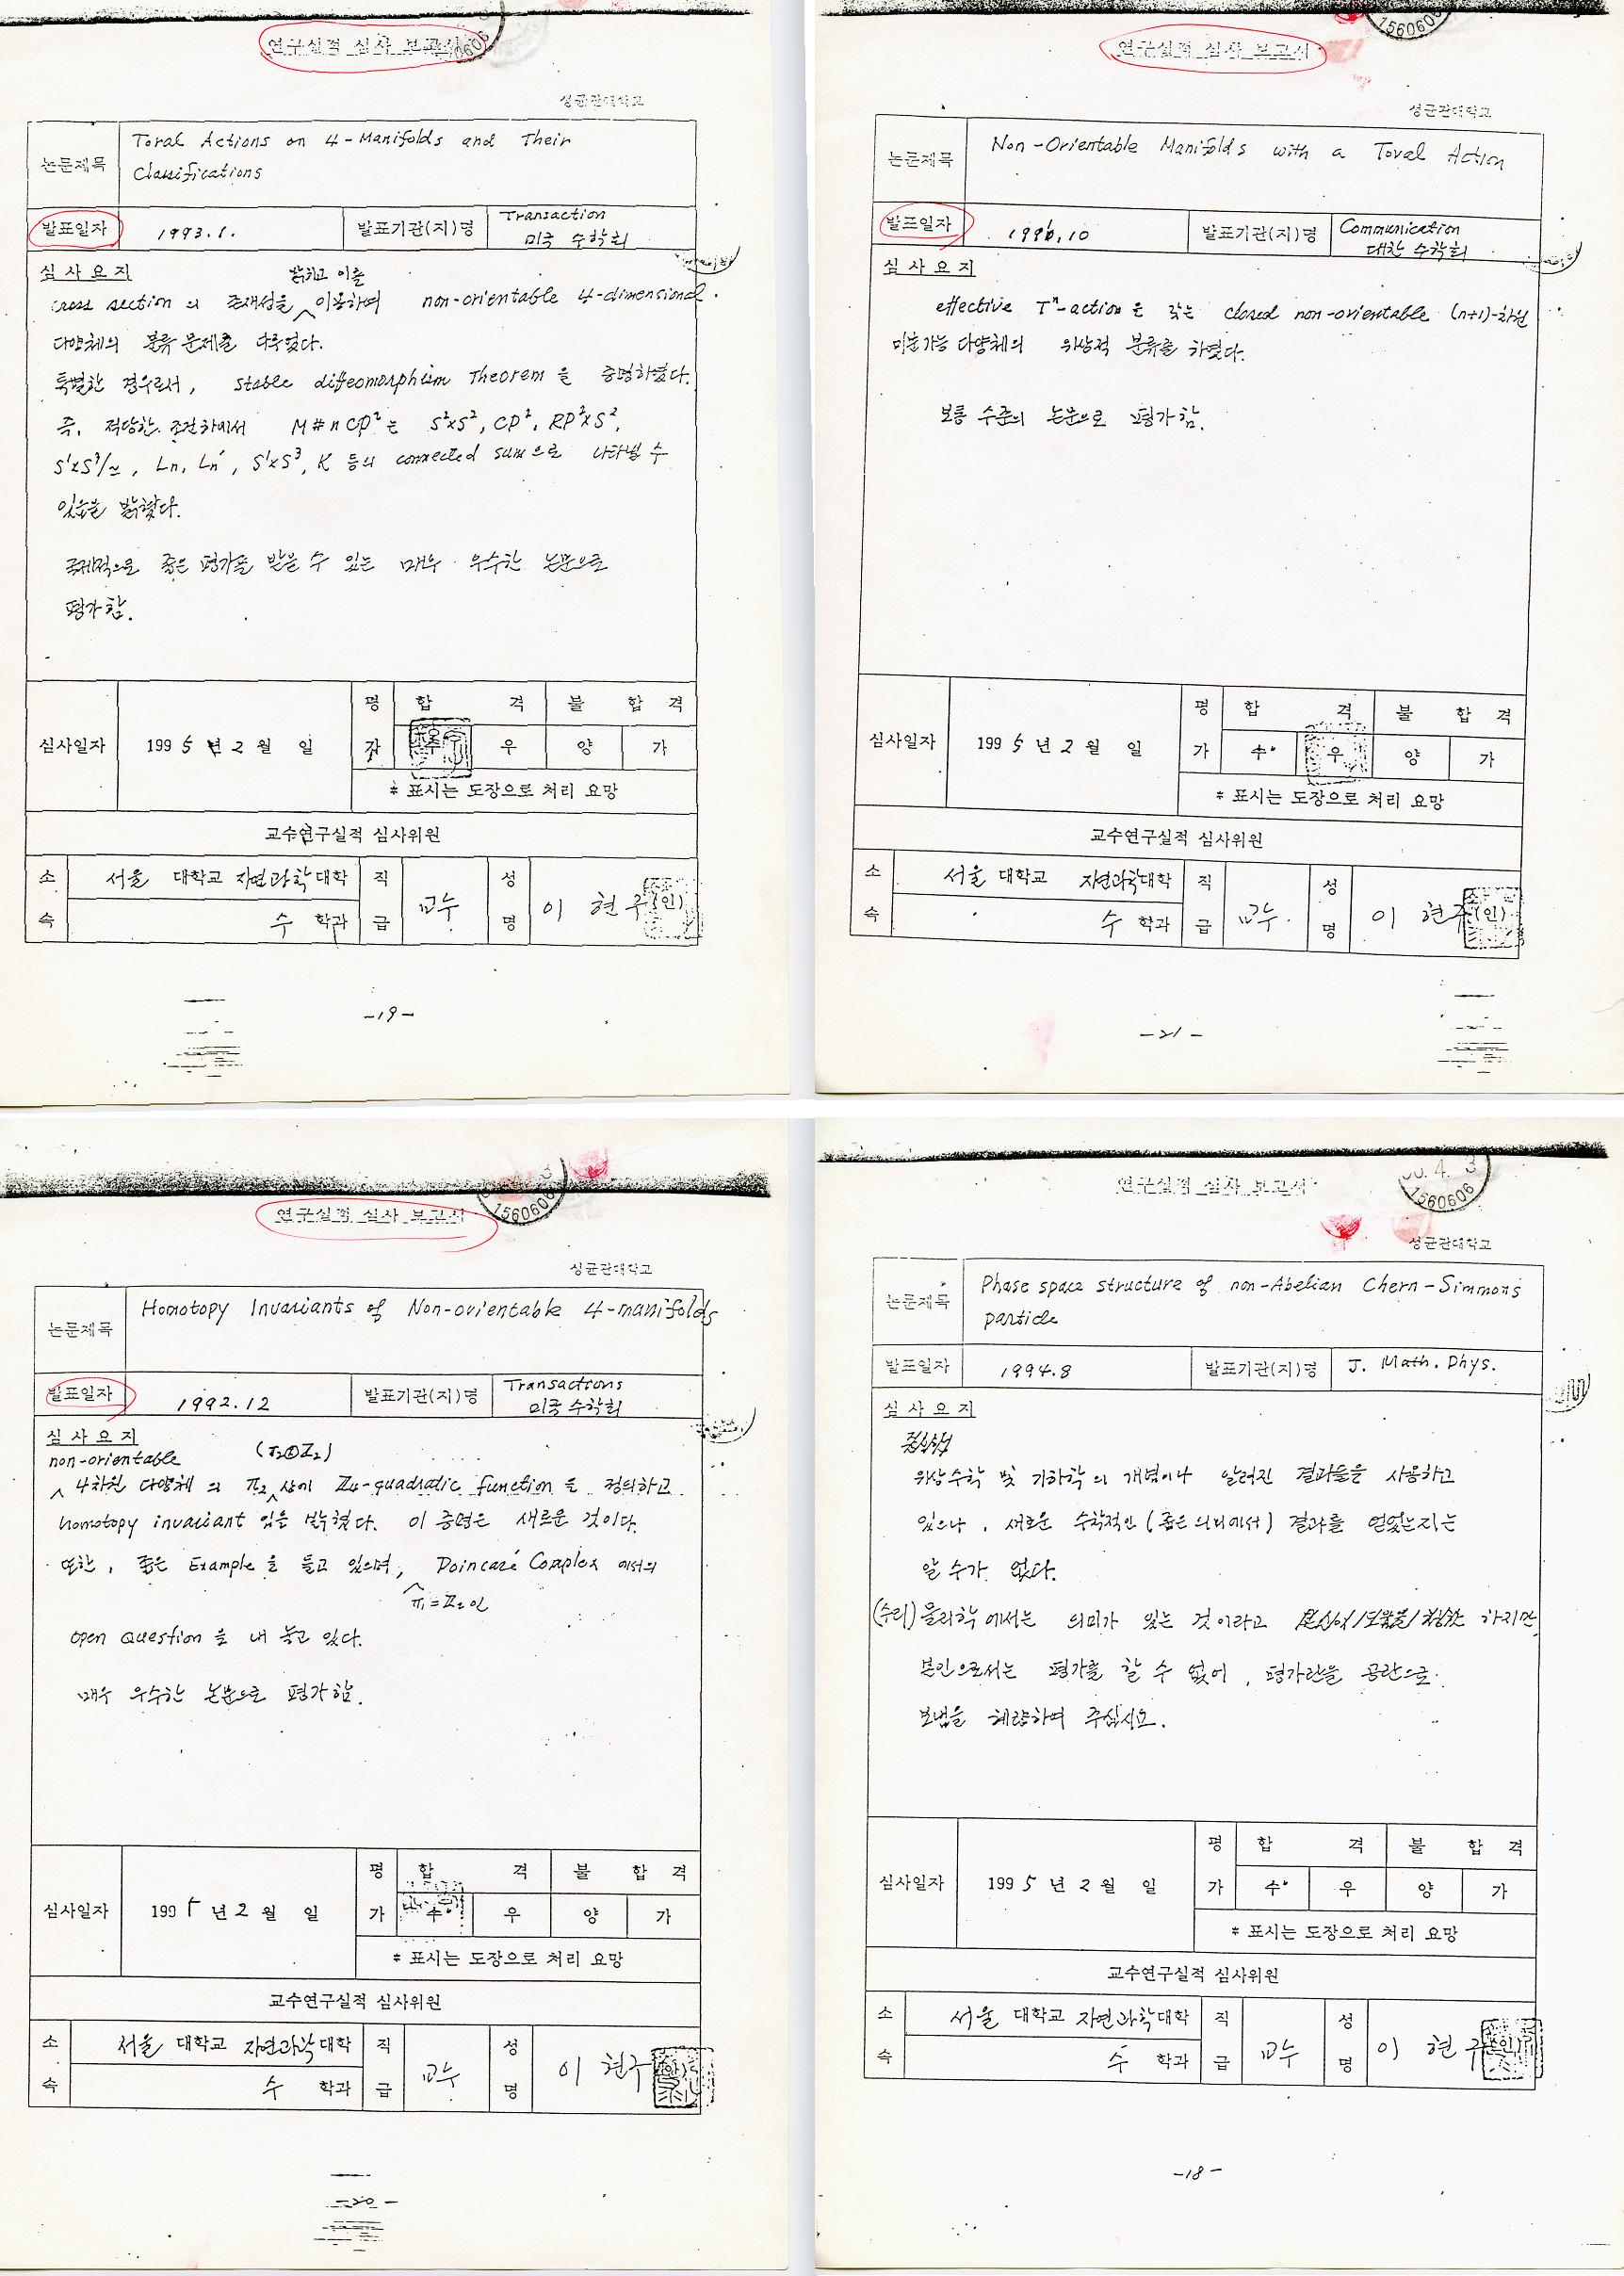 연구실적 심사 보고서
성균관대학교
논문제목
Toral Actions on 4-Manifolds and Their
Classifications
발표일자
1993.1.
발표기관(지)명
Transaction
미국 수학회
심사요지
밝히고 이를
cross section 의 존재성을 이용하여 non-orientable 4-dimensional
다양체의 분류 문제를 다루었다.
특별한 경우로서, stable diffeomorphism Theorem 을 증명하였다.
즉, 적당한 조건하에서 M#nCP² 는 S²xS², CP², RP²xS²,
S¹xS³/~, Ln, Ln', S¹xS³, K 등의 connected sum으로 나타낼 수
있음을 밝혔다.
국제적으로 좋은 평가를 받을 수 있는 매우 우수한 논문으로
평가함.
심사일자
1995년 2월 일
평가
합격
불합격
수 우 양 가
* 표시는 도장으로 처리 요망
교수연구실적 심사위원
소속
서울 대학교 자연과학대학
수 학과
직급
교수
성명
이현구 (인)
-19-
연구실적 심사 보고서
1560606
성균관대학교
논문제목
Non-Orientable Manifolds with a Toral Action
발표일자
발표기관(지)명
Communication
대한 수학회
심사요지
effective Tⁿ-action을 갖는 closed non-orientable (n+1)-차원
미분가능 다양체의 위상적 분류를 하였다.
보통 수준의 논문으로 평가함.
심사일자
1995년 2월 일
평가
합격
불합격
수* 우 양 가
* 표시는 도장으로 처리 요망
교수연구실적 심사위원
소속
서울 대학교 자연과학대학
수 학과
직급
교수
성명
이현구 (인)
-21-
1560606
연구실적 심사 보고서
성균관대학교
논문제목
Homotopy Invariants of Non-orientable 4-manifolds
발표일자
1992.12
발표기관(지)명
Transactions
미국 수학회
심사요지
non-orientable
4차원 다양체의 π₂ 상에 Z₄-quadratic function 을 정의하고
homotopy invariant 임을 밝혔다. 이 증명은 새로운 것이다.
또한, 좋은 Example 을 들고 있으며, Poincaré Complex 에서의
π₁=Z₂인
open Question 을 내 놓고 있다.
매우 우수한 논문으로 평가함.
심사일자
1995년 2월 일
평가
합격
불합격
수* 우 양 가
* 표시는 도장으로 처리 요망
교수연구실적 심사위원
소속
서울 대학교 자연과학대학
수 학과
직급
교수
성명
이현구
-20-
연구실적 심사 보고서
1560606
성균관대학교
논문제목
Phase space structure of non-Abelian Chern-Simmons
particle
발표일자
1994.8
발표기관(지)명
J. Math. Phys.
심사요지
위상수학 및 기하학의 개념이나 알려진 결과들을 사용하고
있으나, 새로운 수학적인 (좁은 의미에서) 결과를 얻었는지는
알 수가 없다.
(수리)물리학에서는 의미가 있는 것이라고 하지만
본인으로서는 평가를 할 수 없어, 평가란을 공란으로
보냄을 혜량하여 주십시요.
심사일자
1995년 2월 일
평가
합격
불합격
수* 우 양 가
* 표시는 도장으로 처리 요망
교수연구실적 심사위원
소속
서울 대학교 자연과학대학
수 학과
직급
교수
성명
이현구
-18-